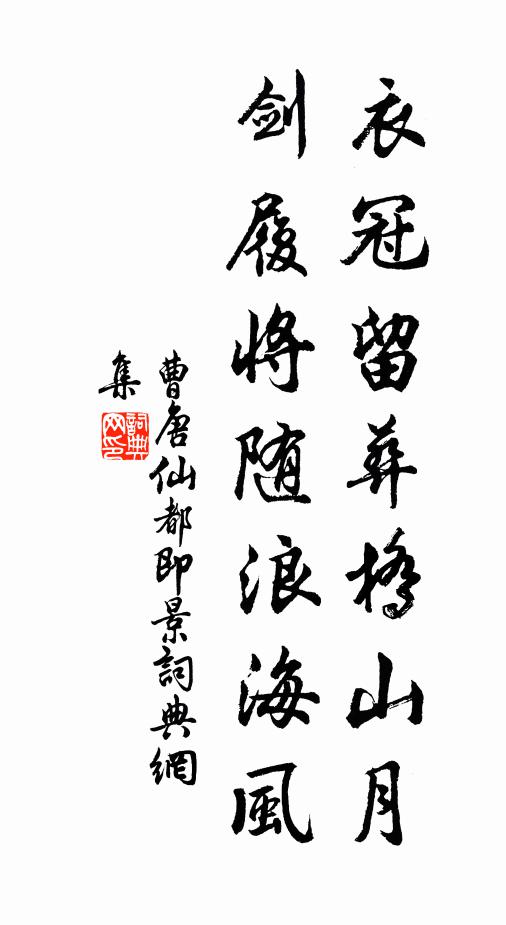 衣冠留葬橋山月
劍履將隨浪海風
曹唐仙都即景詞典網
集
詞典網印